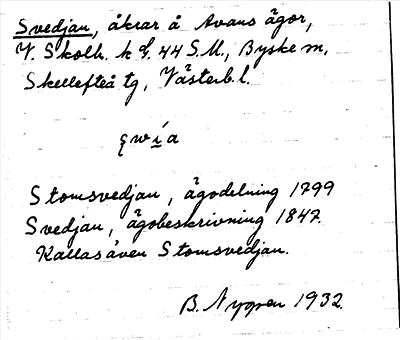 Svedjan, åkrar å Avans ägor,
V. Skolh. k bl. 44 S.M., Byske m,
Skellefteå tg, Västerb. l.
Stomsvedjan, ägodelning 1799
Svedjan, ägobeskrivning 1847.
Kallas även Stomsvedjan.
B. Nygren 1932.